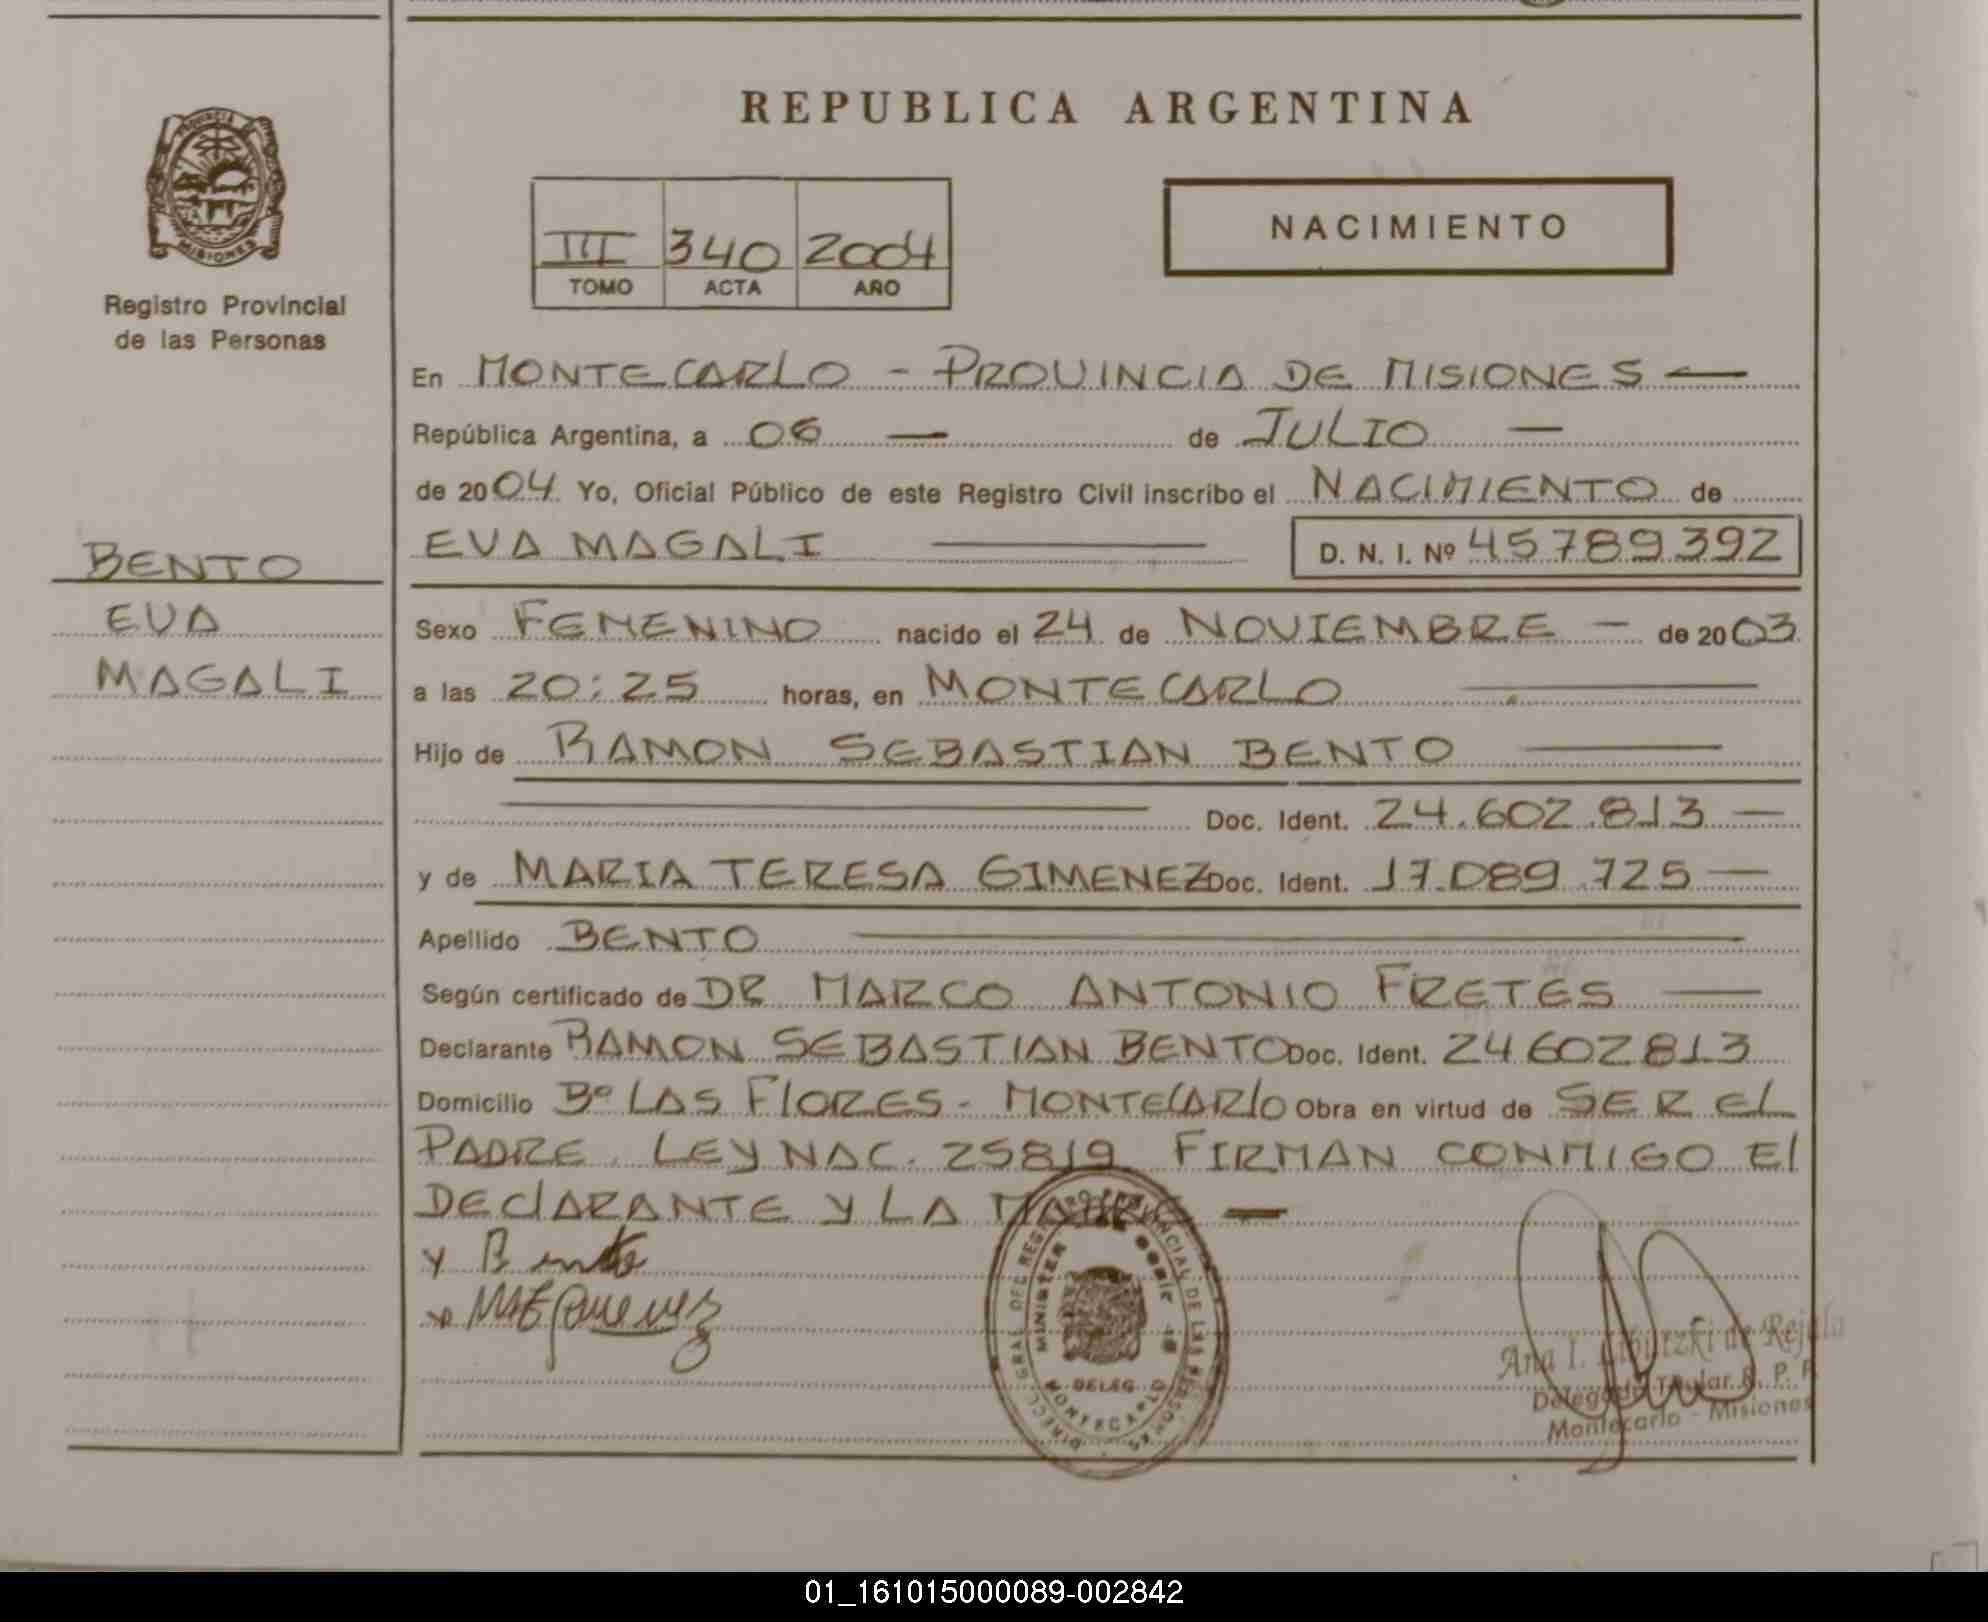 REPUBLICA ARGENTINA
PROVINCIA DE
MISIONES
Registro Provincial
de las Personas
NACIMIENTO
III 340 2004
TOMO ACTA AÑO
En MONTECARLO - PROVINCIA DE MISIONES —
República Argentina, a 06 — de JULIO —
de 2004 Yo, Oficial Público de este Registro Civil inscribo el NACIMIENTO de
EVA MAGALI — D. N. I. Nº 45789392
BENTO
EVA
MAGALI
Sexo FEMENINO nacido el 24 de NOVIEMBRE — de 2003
a las 20:25 horas, en MONTECARLO —
Hijo de RAMON SEBASTIAN BENTO —
— Doc. Ident. 24.602.813 —
y de MARIA TERESA GIMENEZ Doc. Ident. 17.089.725 —
Apellido BENTO —
Según certificado de DR MARCO ANTONIO FRETES —
Declarante RAMON SEBASTIAN BENTO Doc. Ident. 24602813
Domicilio Bº LAS FLORES - MONTECARLO Obra en virtud de SER EL
PADRE. LEY NAC. 25819 FIRMAN CONMIGO El
DEClARANTE Y LA MADRE —
DIRECC. GRAL. DEL REGISTRO PROVINCIAL DE LAS PERSONAS
DELEG.
MONTECARLO
Ana I. de Rejala
Delegada Titular R. P. P.
Montecarlo - Misiones
01_161015000089-002842